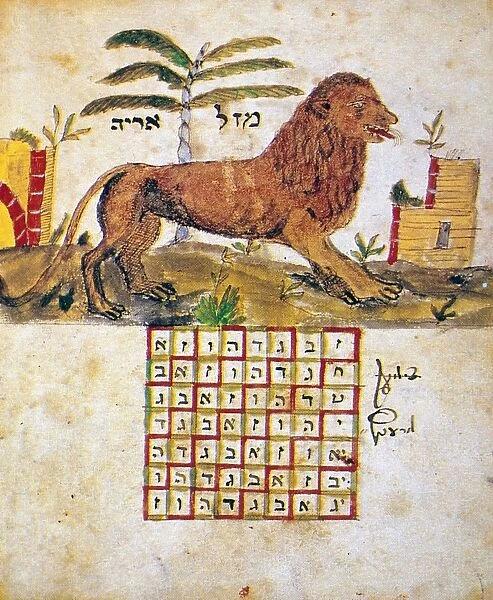 מזל אריה
ז ב ג ד ה ו ז א
ח ג ד ה ו ז א ב
ט ד ה ו ז א ב ג
י ה ו ז א ב ג ד
יא ו ז א ב ג ד ה
יב ז א ב ג ד ה ו
יג א ב ג ד ה ו ז